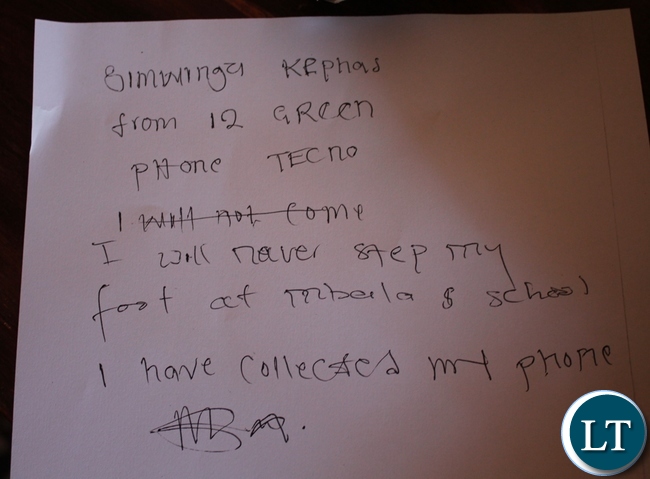 Simwinga Kephas
from 12 GREEN
PHone TECNO
I will not come
I will never step my
foot at mbala s school
I have collected my phone
LT